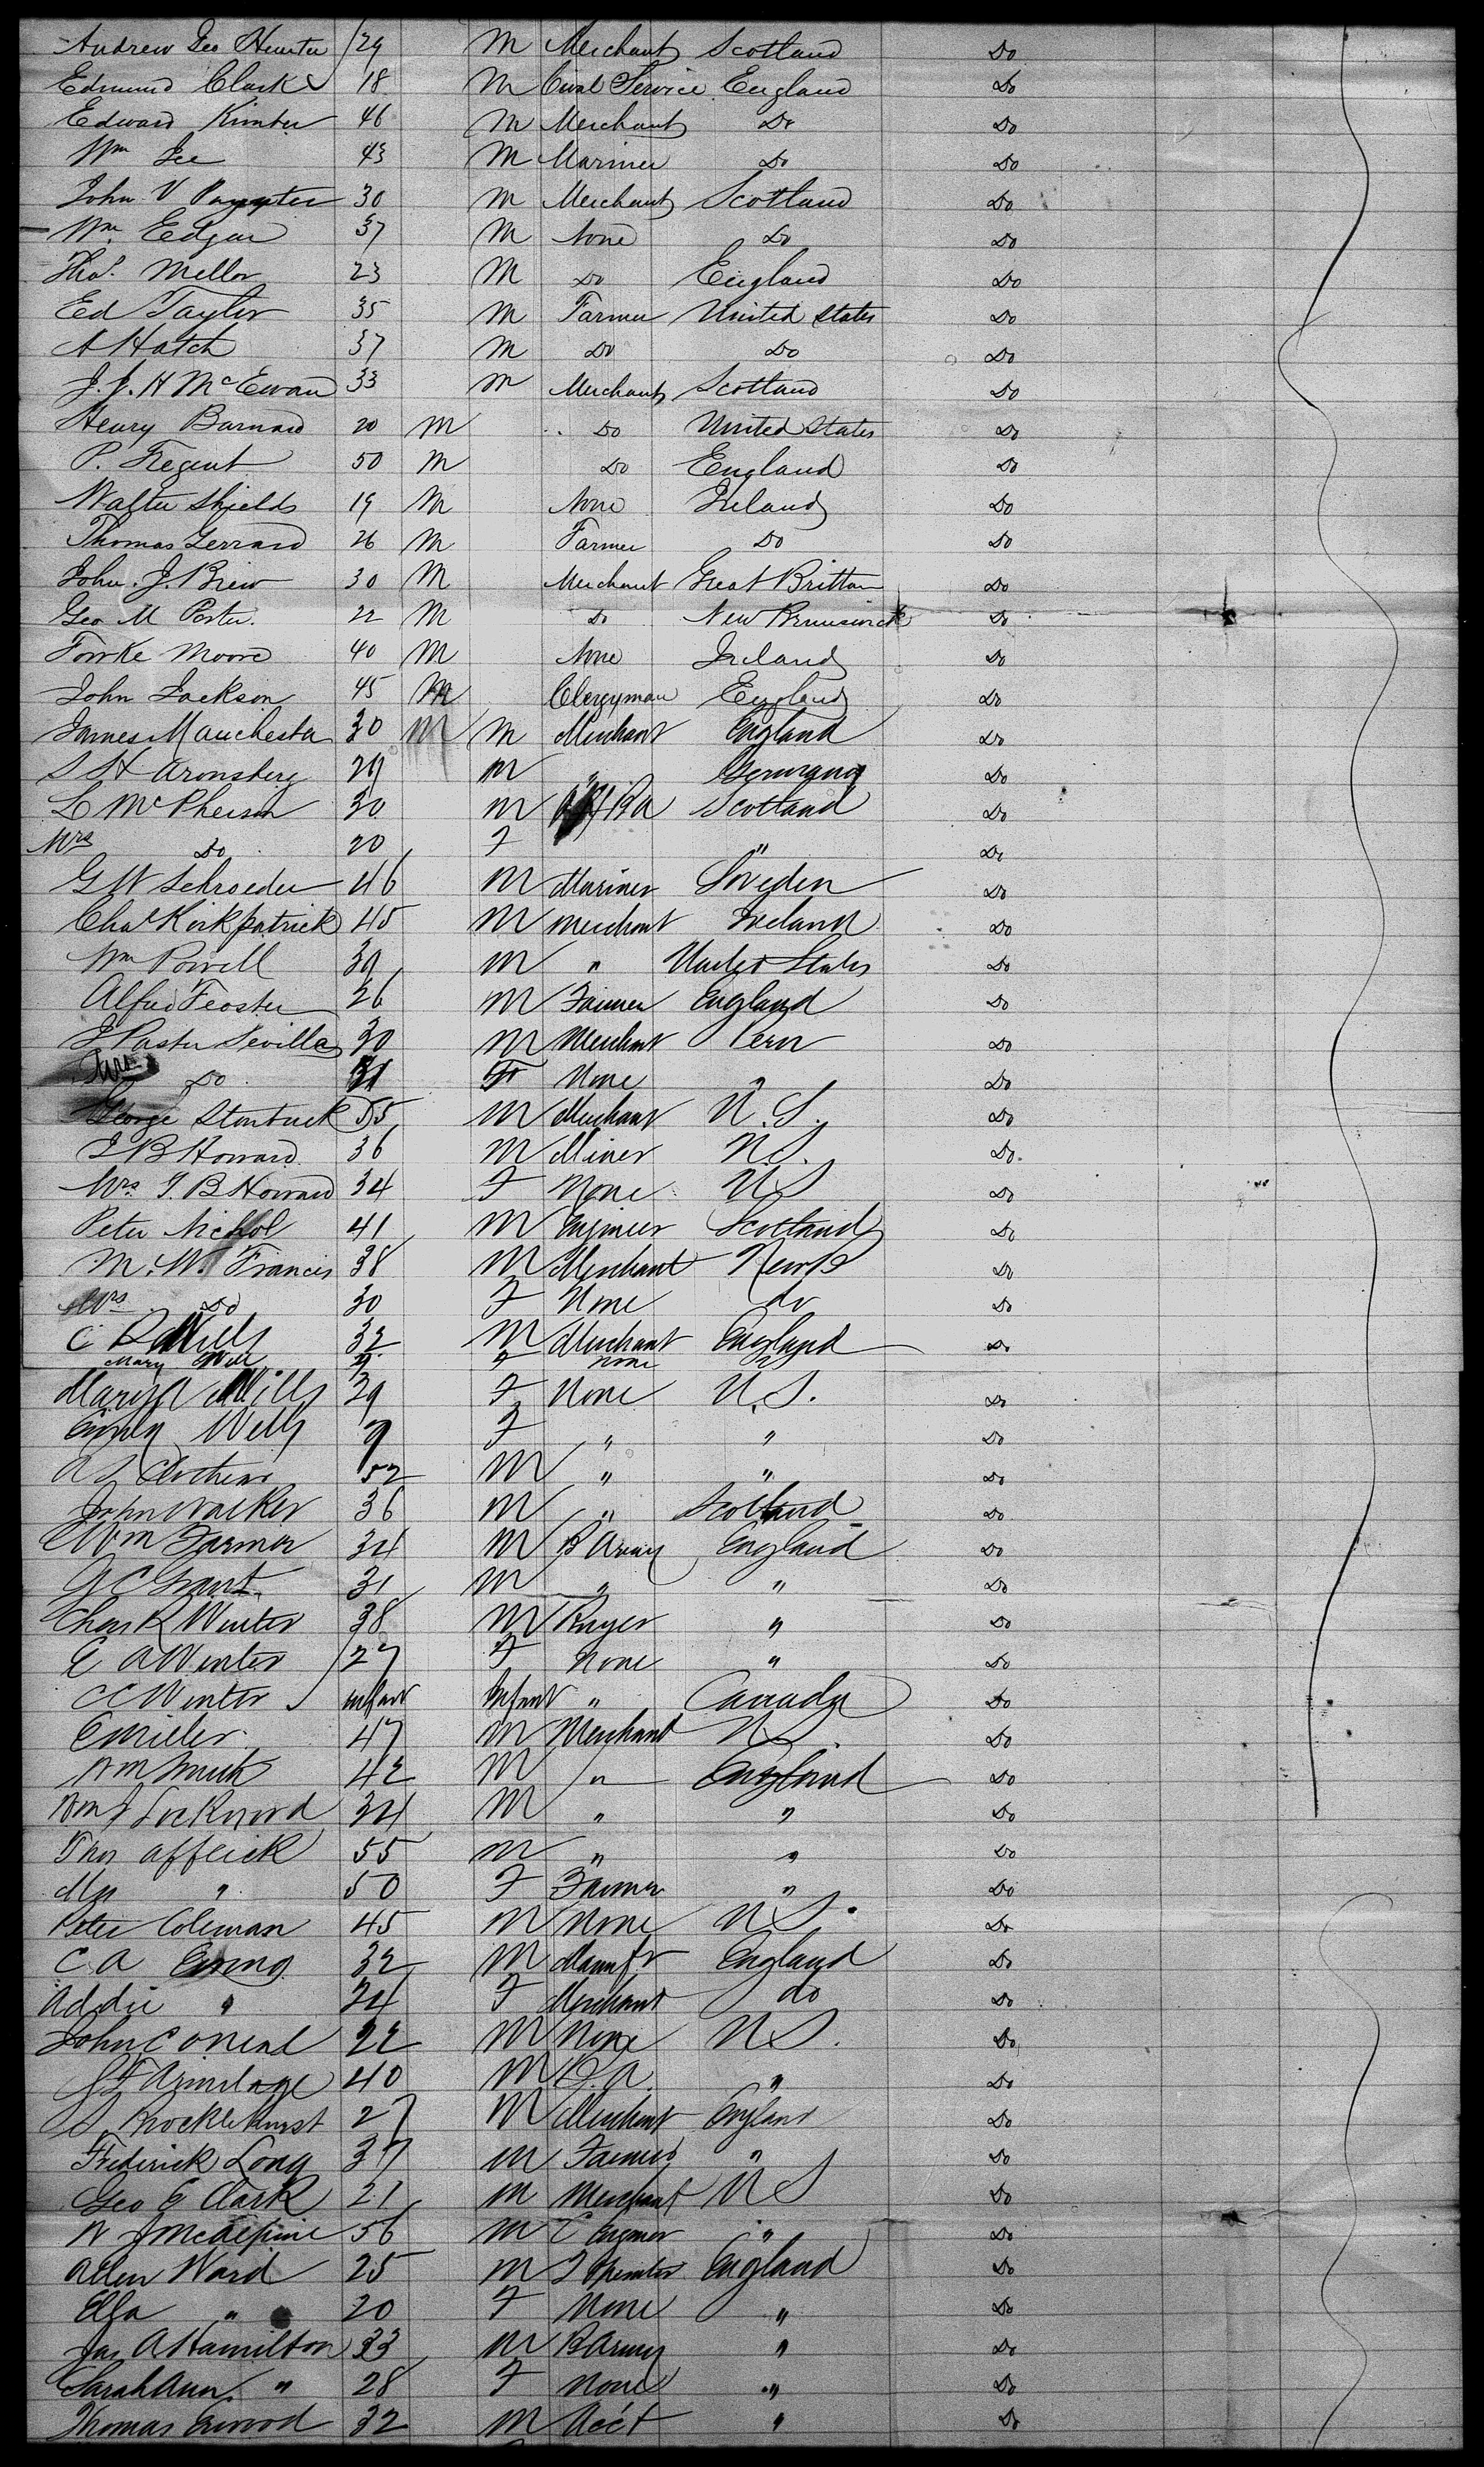 Andrew Geo Hunter 29 M Merchant Scotland Do
Edmund Clark 18 M Civil Service England Do
Edward Kimber 46 M Merchant Do Do
Wm Lee 43 M Mariner Do Do
John V Paynter 30 M Merchant Scotland Do
Wm Edgar 37 M None Do Do
Thos. Mellor 23 M Do England Do
Ed Taylor 35 M Farmer United States Do
A Hatch 37 M Do Do Do
J. J. H McEwan 33 M Merchant Scotland Do
Henry Barnard 20 M Do United States Do
P. Fregent 50 M Do England Do
Walter Shields 19 M None Ireland Do
Thomas Gerrard 26 M Farmer Do Do
John. J. Brew 30 M Merchant Great Brittan Do
Geo M Porter. 22 M Do New Brunswick Do
Fowke Moore 40 M None Ireland Do
John Jackson 45 M Clergyman England Do
James Manchester 30 M M Merchant England Do
S H Aronsberg 29 M " Germany Do
L McPherson 30 M Scotland Do
Mrs Do 20 F " Do
G W Schroeder 46 M Mariner Sweden Do
Chas Kirkpatrick 45 M Merchant Ireland Do
Wm Powell 39 M " United States Do
Alfred Feoster 26 M Farmer England Do
J Pastor Sevilla 30 M Merchant Peru Do
Mrs Do 31 F None " Do
George Stonbuck 55 M Merchant U.S. Do
J B Howard 36 M Miner U.S. Do
Mrs. J. B Howard 34 F None U.S Do
Peter Nichol 41 M Engineer Scotland Do
M. W. Francis 38 M Merchant New B Do
Mrs Do 30 F None do Do
C Wills 32 M Merchant England Do
Mary Will F none
Mary A Wills 29 F None U.S. Do
Emily Wills 9 F " " Do
A S 52 M " " Do
John Walker 36 M " Scotland Do
Wm Farmer 34 M B Army England Do
G C Grant 31 M " " Do
Chas R Winter 38 M " Do
E A Winter 27 F None " Do
C C Winter infant Infant " Canada Do
E Miller 47 M Merchant U.S. Do
Wm Smith 42 M " England Do
Wm J Lockwood 34 M " " Do
Thos Affleick 55 M " " Do
Mrs " 50 F Farmer " Do
Peter Coleman 45 M None U.S. Do
C. A Ewing 32 M Manufr England Do
Addie " 24 F Merchant do Do
John C ONeal 22 M None U.S. Do
S F Armitage 40 M B. A. " Do
S. Brocklehurst 27 M Merchant England Do
Frederick Long 37 M Farmer " Do
Geo E Clark 21 M Merchant U S Do
W J McAlpine 56 M C Engineer " Do
Allen Ward 25 M England Do
Ella " 20 F None " Do
Jas A Hamilton 33 M B Army " Do
Sarah Ann " 28 F None " Do
Thomas Ewood 32 M Acc't " Do